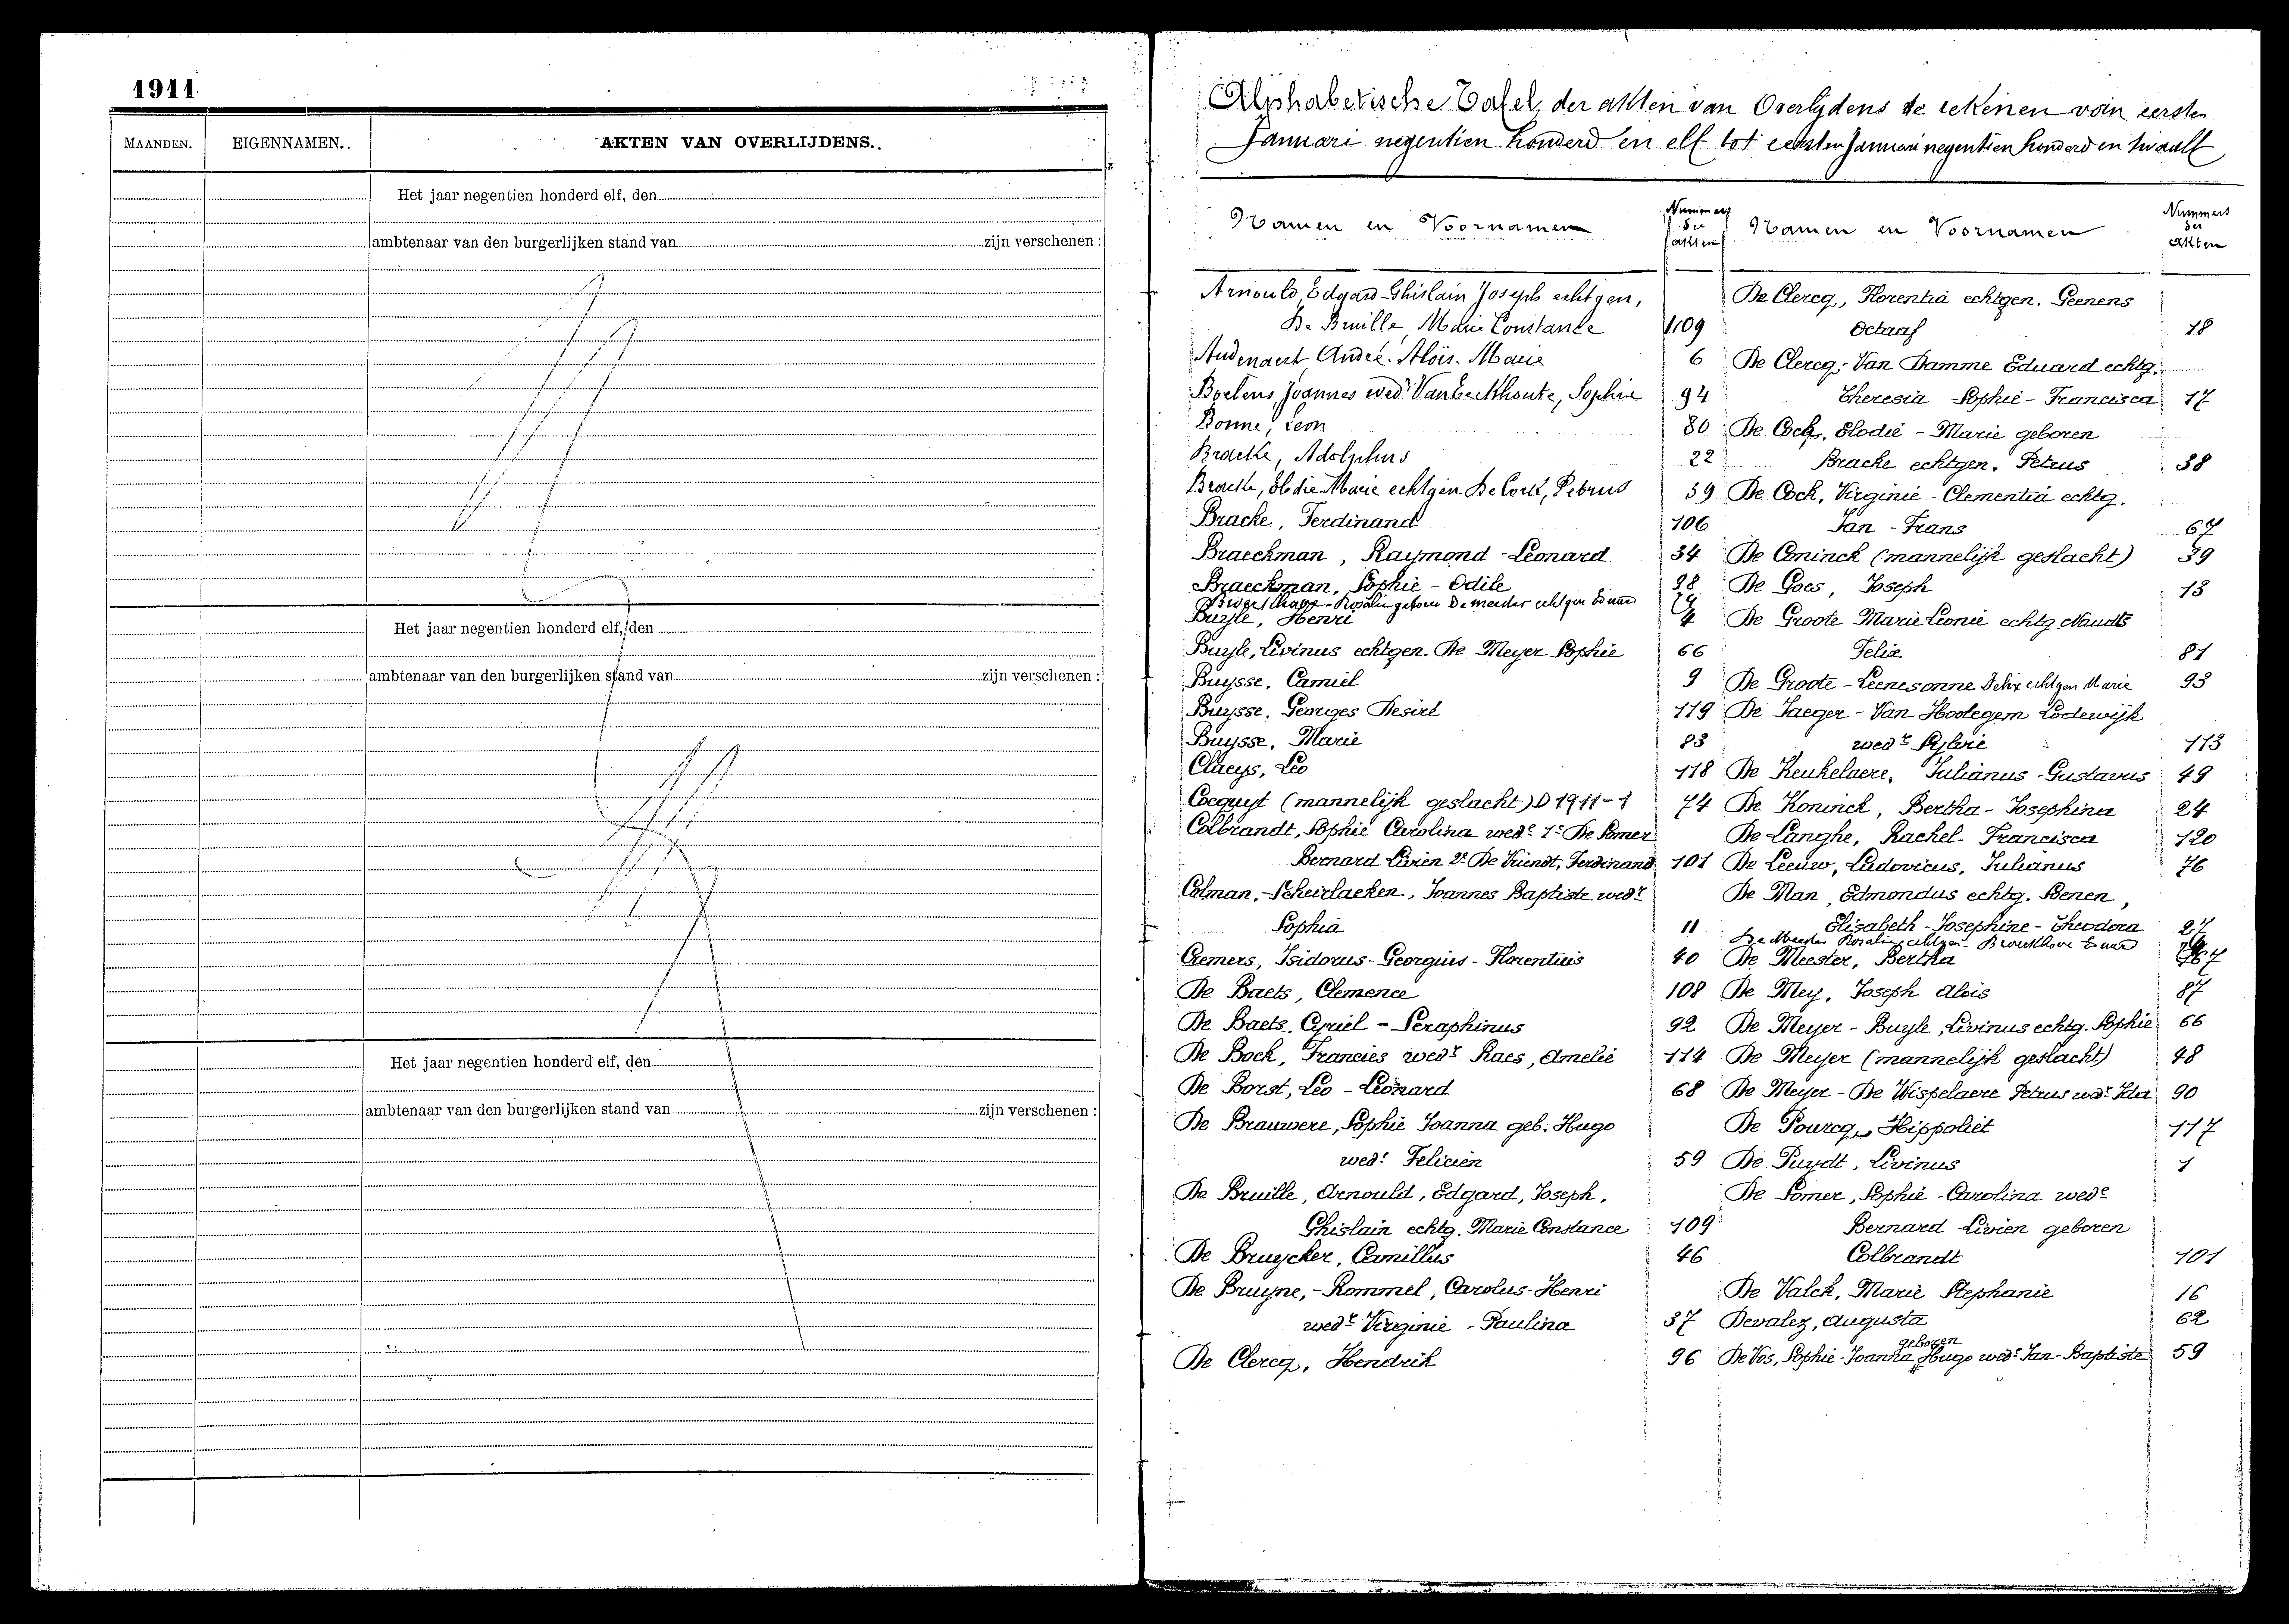 1911
MAANDEN.
EIGENNAMEN.
AKTEN VAN OVERLIJDENS.
Het jaar negentien honderd elf, den
ambtenaar van den burgerlijken stand van zijn verschenen :
Het jaar negentien honderd elf, den
ambtenaar van den burgerlijken stand van zijn verschenen :
Het jaar negentien honderd elf, den
ambtenaar van den burgerlijken stand van zijn verschenen :
Alphabetische Tafel der akten van Overlijdens te rekenen van eersten
Januari negentien honderd en elf tot eersten Januari negentien honderd en twaalf
Namen en Voornamen
Nummers der akten
Arnould, Edgard Ghislain Joseph echtgen,
De Bruille, Marie Constance 109
Audenaert, André. Aloïs. Marie 6
Boelens, Joannes wedr Van Eeckhoute, Sophie 94
Bonne, Leon 80
Bracke, Adolphus 22
Bracke, Elodie Marie echtgen. De Cock, Petrus 39
Bracke, Ferdinand 106
Braeckman, Raymond - Leonard 34
Braeckman, Sophie - Odile 98
Rosalie geboren De meester echtgen Eduard
Buyle, Henri 4
Buyle, Livinus echtgen. De Meyer Sophie 66
Buysse, Camiel 9
Buysse, Georges Desiré 119
Buysse, Marie 83
Claeys, Leo 118
Cocquyt (mannelijk geslacht) D 1911-1 74
Colbrandt, Sophie Carolina wede 1e De Somer
Bernard Livien 2e De Vriendt, Ferdinand 101
Colman. - Scheirlaeken, Joannes Baptiste wedr
Sophia 11
Cremers, Isidorus - Georgius - Florentius 40
De Baets, Clemence 108
De Baets, Cyriel - Seraphinus 92
De Bock, Francies wedr Raes, Amelie 114
De Borst, Leo - Leonard 68
De Brauwere, Sophie Joanna geb. Hugo
wede Felicien 59
De Bruille, Arnould, Edgard, Joseph,
Ghislain echtg. Marie Constance 109
De Bruycker, Camillus 46
De Bruyne, - Rommel, Carolus - Henri
wedr Virginie - Paulina 37
De Clercq, Hendrik 96
Namen en Voornamen
Nummers der akten
De Clercq, Florentia echtgen. Geenens
Octaaf 18
De Clercq, Van Damme Eduard echtg.
Theresia - Sophie - Francisca 17
De Cock, Elodie - Marie geboren
Bracke echtgen. Petrus 38
De Cock, Virginie - Clementia echtg.
Jan - Frans 67
De Coninck (mannelijk geslacht) 39
De Goes, Joseph 13
De Groote Marie Leonie echtg Naudts
Felix 81
De Groote - Leenesonne Felix echtgen Marie 93
De Jaeger - Van Hootegem Lodewijk
wedr Sylvie 113
De Keukelaere, Julianus - Gustavus 49
De Koninck, Bertha - Josephina 24
De Langhe, Rachel - Francisca 120
De Leeuw, Ludovicus, Julianus 76
De Man, Edmondus echtg. Benen,
Elisabeth - Josephine - Theodora 27
De Meester Rosalie echtgen Eduard
De Meester, Bertha
De Mey, Joseph Alois 87
De Meyer - Buyle, Livinus echtg. Sophie 66
De Meyer (mannelijk geslacht) 48
De Meyer - De Wispelaere Petrus wedr Ida 90
De Pourcq, Hippoliet 117
De Puydt, Livinus 1
De Somer, Sophie - Carolina wede
Bernard Livien geboren
Colbrandt 101
De Valck, Marie Stephanie 16
Devalez, Augusta 62
De Vos, Sophie - Joanna geboren Hugo wede Jan - Baptiste 59